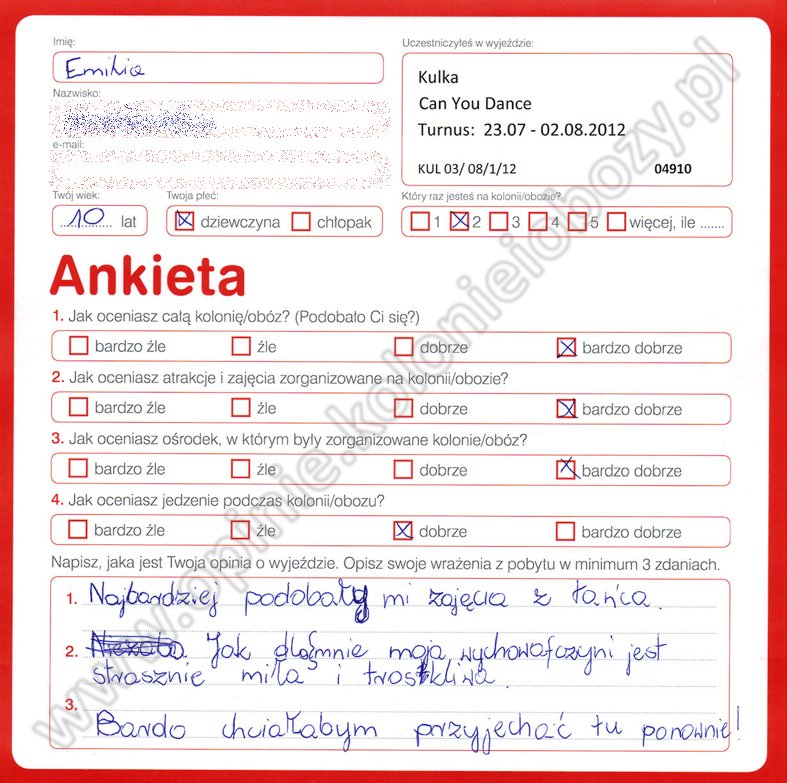 Imię:
Emilia
Nazwisko:
e-mail:
Twój wiek:
10 lat
Twoja płeć:
dziewczyna chłopak
Uczestniczyłeś w wyjeździe:
Kulka
Can You Dance
Turnus: 23.07 - 02.08.2012
KUL 03/ 08/1/12 04910
Który raz jesteś na kolonii/obozie?
1 2 3 4 5 więcej, ile .......
Ankieta
1. Jak oceniasz całą kolonię/obóz? (Podobało Ci się?)
bardzo źle źle dobrze bardzo dobrze
2. Jak oceniasz atrakcje i zajęcia zorganizowane na kolonii/obozie?
bardzo źle źle dobrze bardzo dobrze
3. Jak oceniasz ośrodek, w którym były zorganizowane kolonie/obóz?
bardzo źle źle dobrze bardzo dobrze
4. Jak oceniasz jedzenie podczas kolonii/obozu?
bardzo źle źle dobrze bardzo dobrze
Napisz, jaka jest Twoja opinia o wyjeździe. Opisz swoje wrażenia z pobytu w minimum 3 zdaniach.
1. Najbardziej podobały mi zajęcia z tańca.
2. Jak dla mnie moja wychowafczyni jest
strasznie miła i troskliwa.
3. Bardo chciałabym przyjechać tu ponownie!
www.opinie.kolonieiobozy.pl